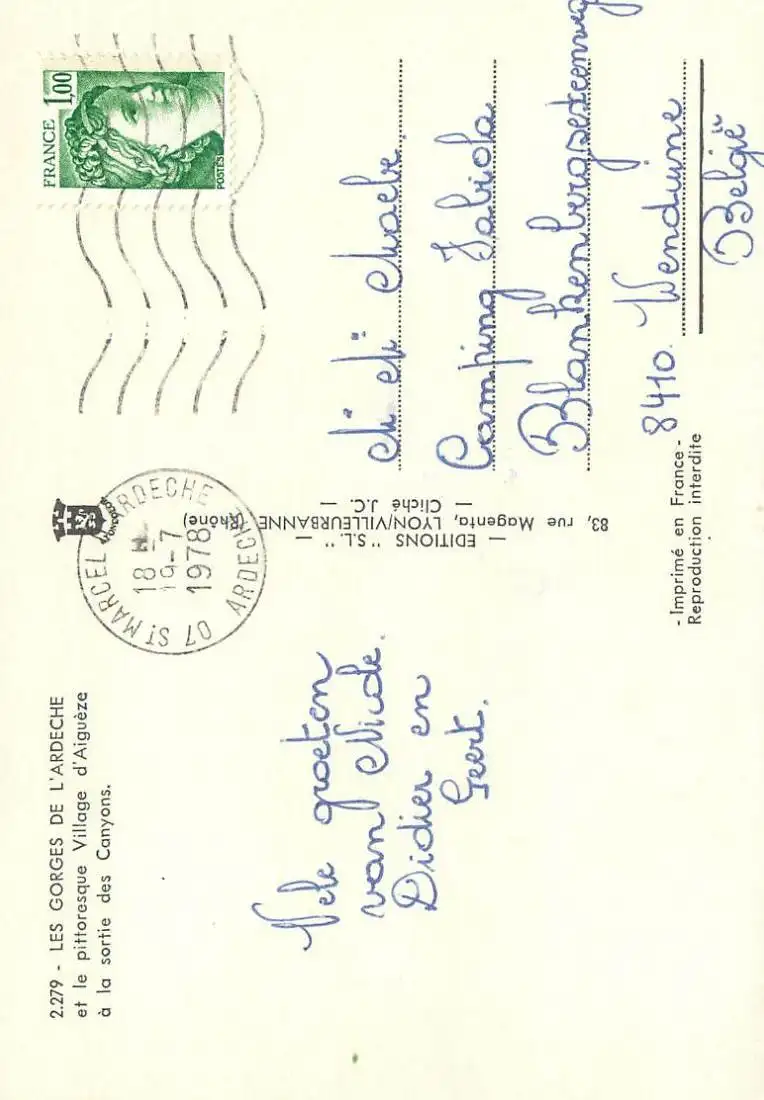 2.279 - LES GORGES DE L'ARDECHE
et le pittoresque Village d'Aiguèze
à la sortie des Canyons.
Vele groeten
van Nicole.
Didier en
Geert.
EDITIONS "S.L."
83, rue Magenta, LYON/VILLEURBANNE (Rhône)
— Cliché J.C. —
- Imprimé en France -
Reproduction interdite
07 ST MARCEL D'ARDECHE
18 H
19-7
1978
ARDECHE
FRANCE
1,00
POSTES
Camping Fabiola
Blankenbergsesteenweg
8410 Wenduine
België